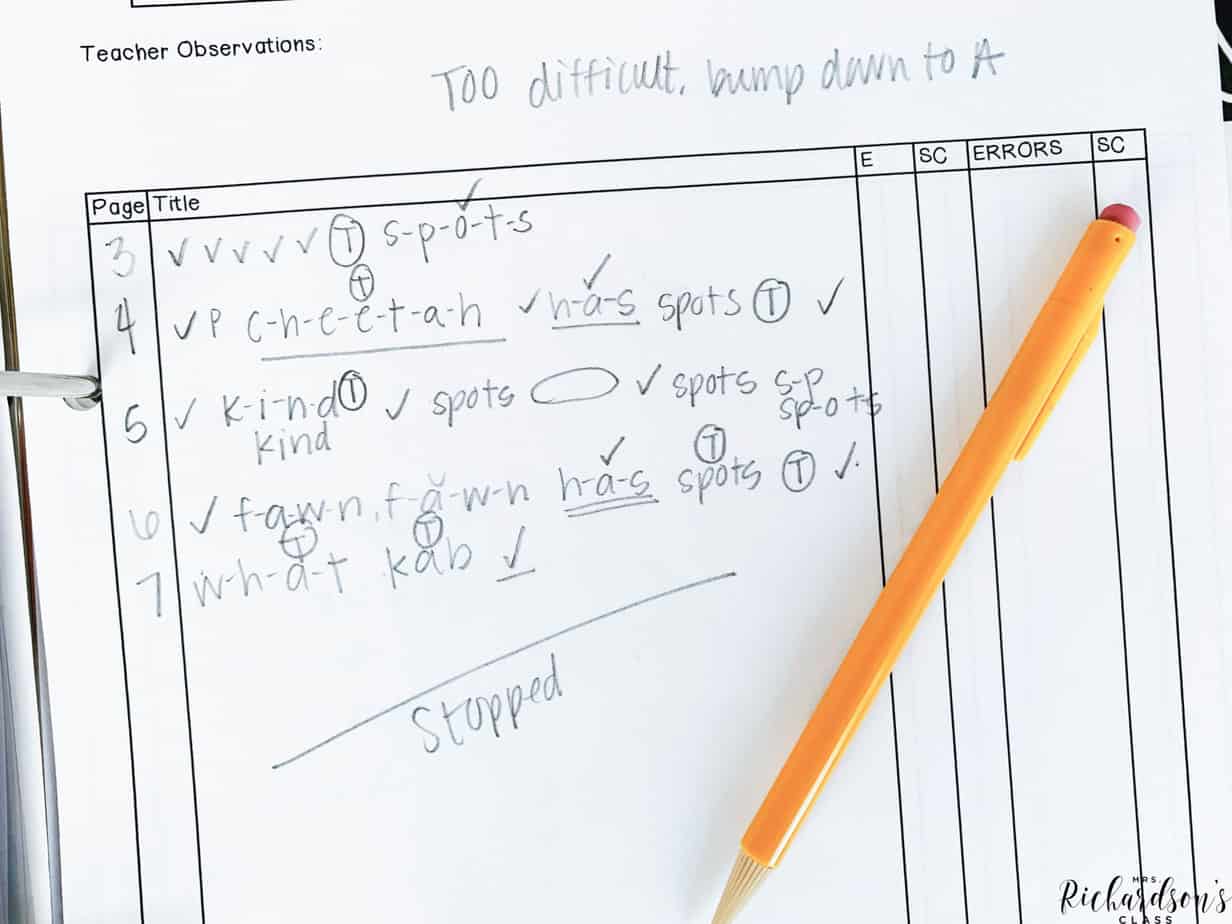 Teacher Observations:
Too difficult, bump down to A
Page Title E SC ERRORS SC
3 ✓ ✓ ✓ ✓ ✓ Ⓣ s-p-o-t-s ✓
Ⓣ
4 ✓ P c-h-e-e-t-a-h ✓ h-a-s ✓ spots Ⓣ ✓
5 ✓ k-i-n-d Ⓣ ✓ spots ✓ spots s-p
kind sp-o-t-s
6 ✓ f-a-w-n, f-ă-w-n h-a-s ✓ spots Ⓣ Ⓣ ✓.
Ⓣ Ⓣ
7 w-h-a-t kab ✓
Stopped
MRS.
Richardson's
CLASS